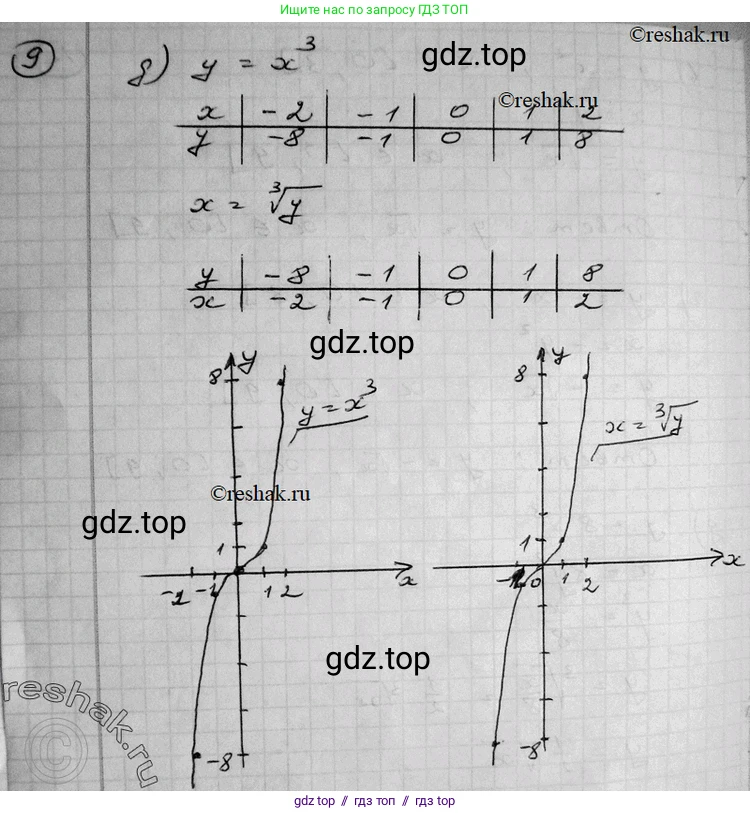 Ищите нас по запросу ГДЗ ТОП
©reshak.ru
9 д) y = x³
gdz.top
©reshak.ru
x | -2 | -1 | 0 | 1 | 2
y | -8 | -1 | 0 | 1 | 8
x = ∛y
y | -8 | -1 | 0 | 1 | 8
x | -2 | -1 | 0 | 1 | 2
gdz.top
8 y
y = x³
8 y
x = ∛y
©reshak.ru
gdz.top
1
-2 -1 1 2 x
1
0 1 2 x
gdz.top
reshak.ru
-8
-8
gdz top // гдз топ // gdz top